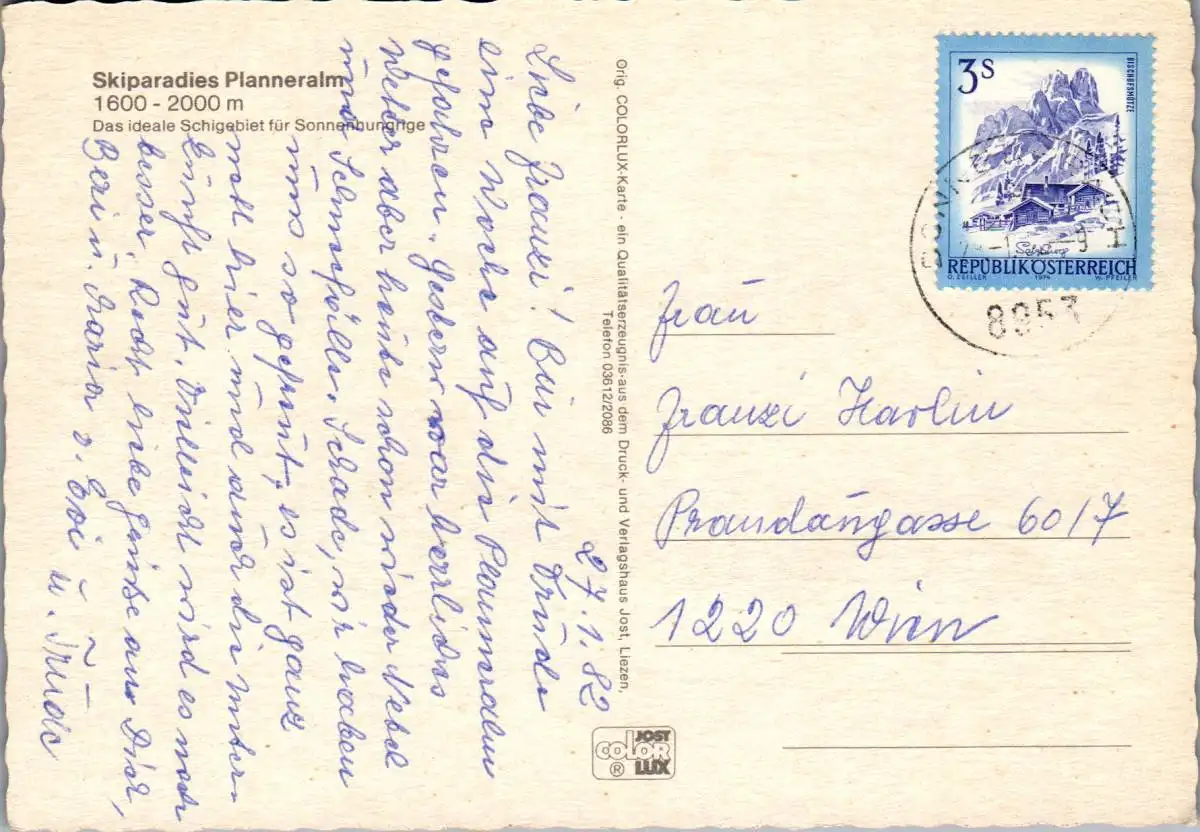 Skiparadies Planneralm
1600 - 2000 m
Das ideale Schigebiet für Sonnenhungrige
27.1.82
Liebe Franzi! Bin mit Trude
eine Woche auf die Planneralm
gefahren. Gestern war herrliches
Wetter aber heute schon wieder Nebel
und Schneefälle. Schade, wir haben
uns so gefreut, es ist ganz
nett hier und auch die Unter-
kunft gut. Vielleicht wird es noch
besser. Recht liebe Grüße an Dich,
Beri u. Maria v. Evi u. Trude
Orig. COLORLUX-Karte · ein Qualitätserzeugnis · aus dem Druck- und Verlagshaus Jost, Liezen,
Telefon 03612/2086
JOST
COLOR
® LUX
3S
BISCHOFSMÜTZE
Salzburg
REPUBLIK ÖSTERREICH
O. ZEILLER 1974 W. PFEILER
8953
Frau
Franzi Harlin
Prandaugasse 60/7
1220 Wien